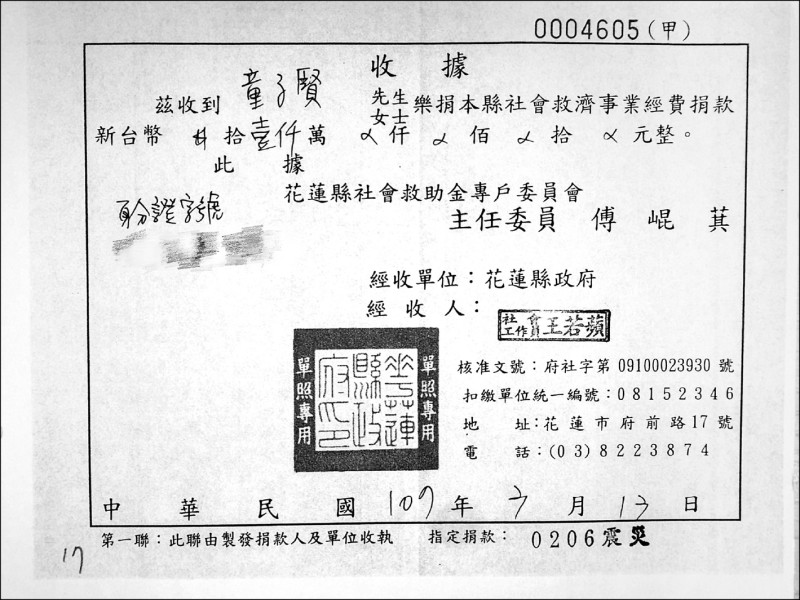 0004605(甲)
收據
茲收到 童子賢 先生女士 樂捐本縣社會救濟事業經費捐款
新台幣 拾壹仟萬 仟 佰 拾 元整。
此據
花蓮縣社會救助金專戶委員會
主任委員 傅崐萁
身分證字號
經收單位：花蓮縣政府
經收人：社會工作員王若蘋
單照專用 花蓮縣政府印 單照專用
核准文號：府社字第 09100023930 號
扣繳單位統一編號：08152346
地址：花蓮市府前路17號
電話：(03)8223874
中華民國 107 年 3 月 13 日
第一聯：此聯由製發捐款人及單位收執 指定捐款：0206震災
17